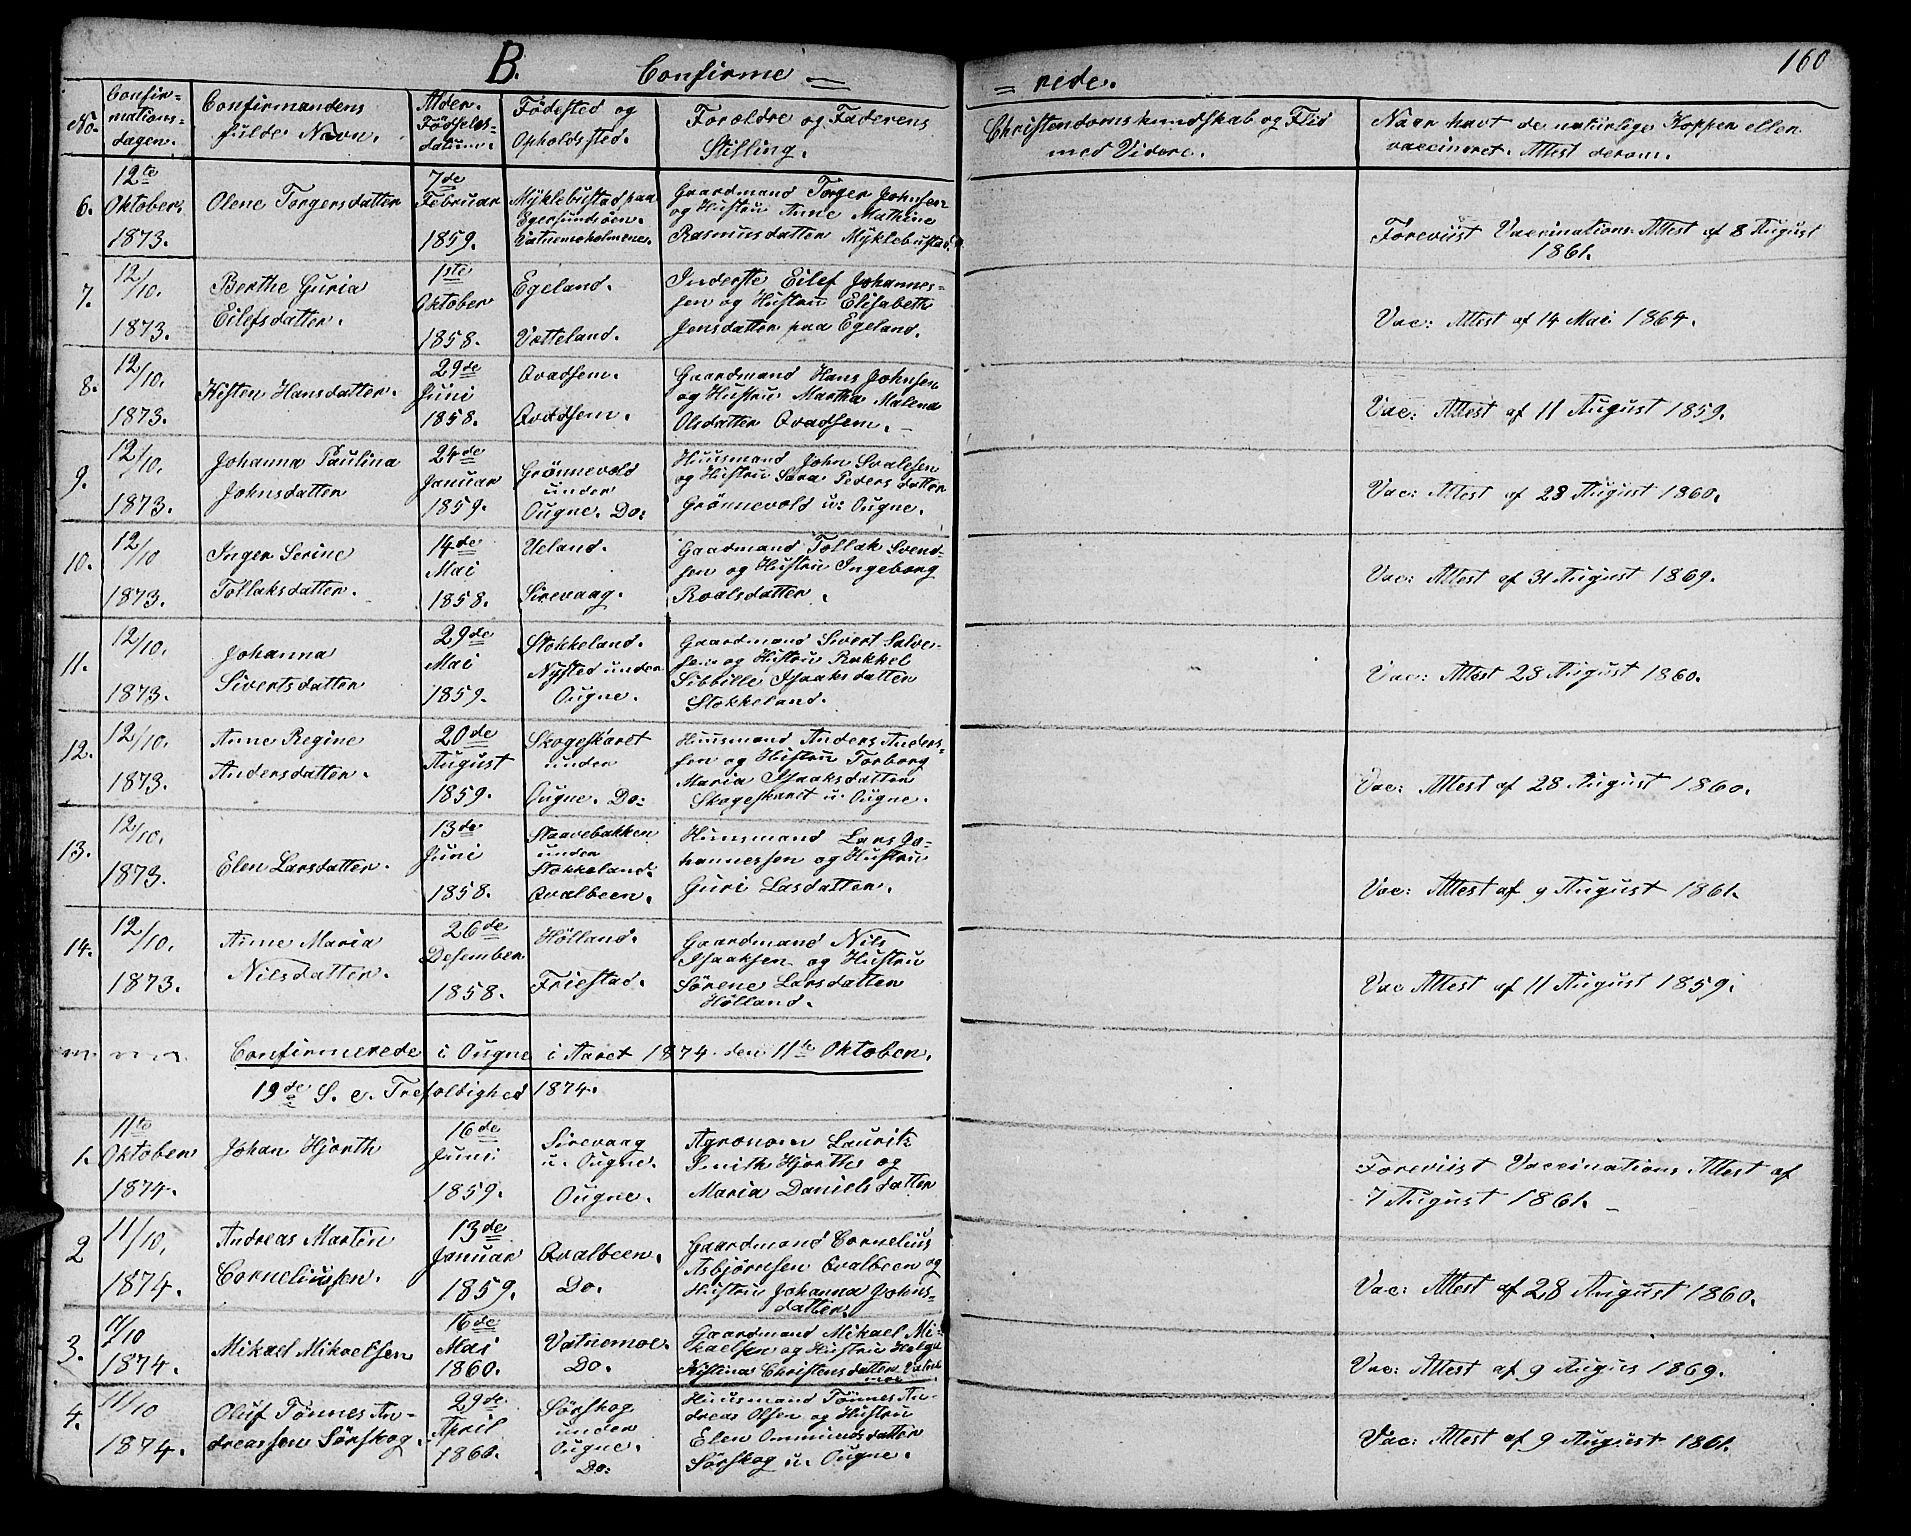 160
B.
Confirme =
= rede.
No.
Confir=
mations=
dagen.
Confirmandens
fulde Navn.
Alder.
Fødsels=
datum.
Fødested og
Opholdssted.
Forældre og Faderens
Stilling.
Christendomskundskab og Flid
med Videre.
Naar havt de naturlige Kopper eller
vaccineret. Attest derom.
6.
12te
Oktober.
1873.
Olene Torgersdatter
7de
Februar
1859.
Myklebustad paa
Egersundsöen.
Vatnemoholmene.
Gaardmand Torger Johnsen
og Hustru Anne Mathine
Rasmusdatter Myklebustad.
Foreviist Vaccinations Attest af 8 August
1861.
7.
12/10.
1873.
Berthe Guria
Eilefsdatter.
1ste
Oktober
1858.
Egeland.
Vatteland.
Inderste Eilef Johannes-
sen og Hustru Elisabeth
Jonsdatter paa Egeland.
Vac: Attest af 14 Mai 1864.
8.
12/10.
1873.
Kisten Hansdatter.
29de
Juni
1858.
Qvadsem.
Qvadsem.
Gaardmand Hans Johnsen
og Hustru Martha Malena
Olsdatter Qvadsem.
Vac: Attest af 11 August 1859.
9.
12/10.
1873.
Johanna Paulina
Johnsdatter
24de
Januar
1859.
Grönnevold
under
Ougne. Do:
Huusmand John Svalesen
og Hustru Sara Pedersdatter
Grönnevold u: Ougne.
Vac: Attest af 28 August 1860.
10.
12/10
1873.
Inger Serine
Tollaksdatter.
14de
Mai
1858.
Ueland.
Sirevaag.
Gaardmand Tollak Svend-
sen og Hustru Ingeborg
Roalsdatter.
Vac: Attest af 31 August 1869.
11.
12/10.
1873.
Johanna
Sivertsdatter
29de
Mai
1859.
Stokkeland.
Nysted under
Ougne.
Gaardmand Sivert Salve-
sen og Hustru Rakkel
Sibbille Isaaksdatter
Stokkeland.
Vac: Attest 28 August 1860.
12.
12/10.
1873.
Anne Regine
Andersdatter.
20de
August
1859.
Skogeskaret
under
Ougne. Do:
Huusmand Anders Anders-
sen og Hustru Torborg
Maria Isaaksdatter
Skogeskaret u: Ougne.
Vac: Attest af 28 August 1860.
13.
12/10.
1873.
Elen Larsdatter.
13de
Juni
1858.
Staavebakken
under
Stokkeland.
Qvalbeen.
Huusmand Lars Jo-
hannessen og Hustru
Guri Lasdatter.
Vac: Attest af 9 August 1861.
14.
12/10.
1873.
Anne Maria
Nilsdatter.
26de
Desember
1858.
Hölland.
Friestad.
Gaardmand Nils
Isaaksen og Hustru
Sörene Larsdatter
Hölland.
Vac Attest af 11 August 1859.
Confirmerede i Ougne i Aaret 1874 den 11te Oktober.
19de S. e. Trefoldighed 1874.
1.
11te
Oktober
1874.
Johan Hjorth
16de
Juni
1859.
Sirevaag
u. Ougne.
Ougne.
Agronom Laurits
Smith Hjorthe og
Maria Danielsdatter
Foreviist Vaccinations Attest af
7 August 1861.
2
11/10.
1874.
Andreas Martin
Corneliussen.
13de
Januar
1859.
Qvalbeen.
Do.
Gaardmand Cornelius
Asbjörnsen Qvalbeen og
Hustru Johanna Johns-
datter.
Vac: Attest af 28 August 1860.
3.
11/10
1874.
Mikael Mikaelsen
16de
Mai
1860.
Vatnemoe.
Do.
Gaardmand Mikael Mi-
kaelsen og Hustru Helga
Kistina Christensdatter Vatne
moe
Vac: Attest af 9 Augus 1869.
4.
11/10
1874.
Oluf Tönnes An-
dreassen Sörskog.
29de
April
1860.
Sörskog
under
Ougne.
Do:
Huusmand Tönnes An-
dreas Olsen og Hustru
Elen Ommundsdatter
Sörskog u. Ougne.
Vac: Attest af 9 August 1861.